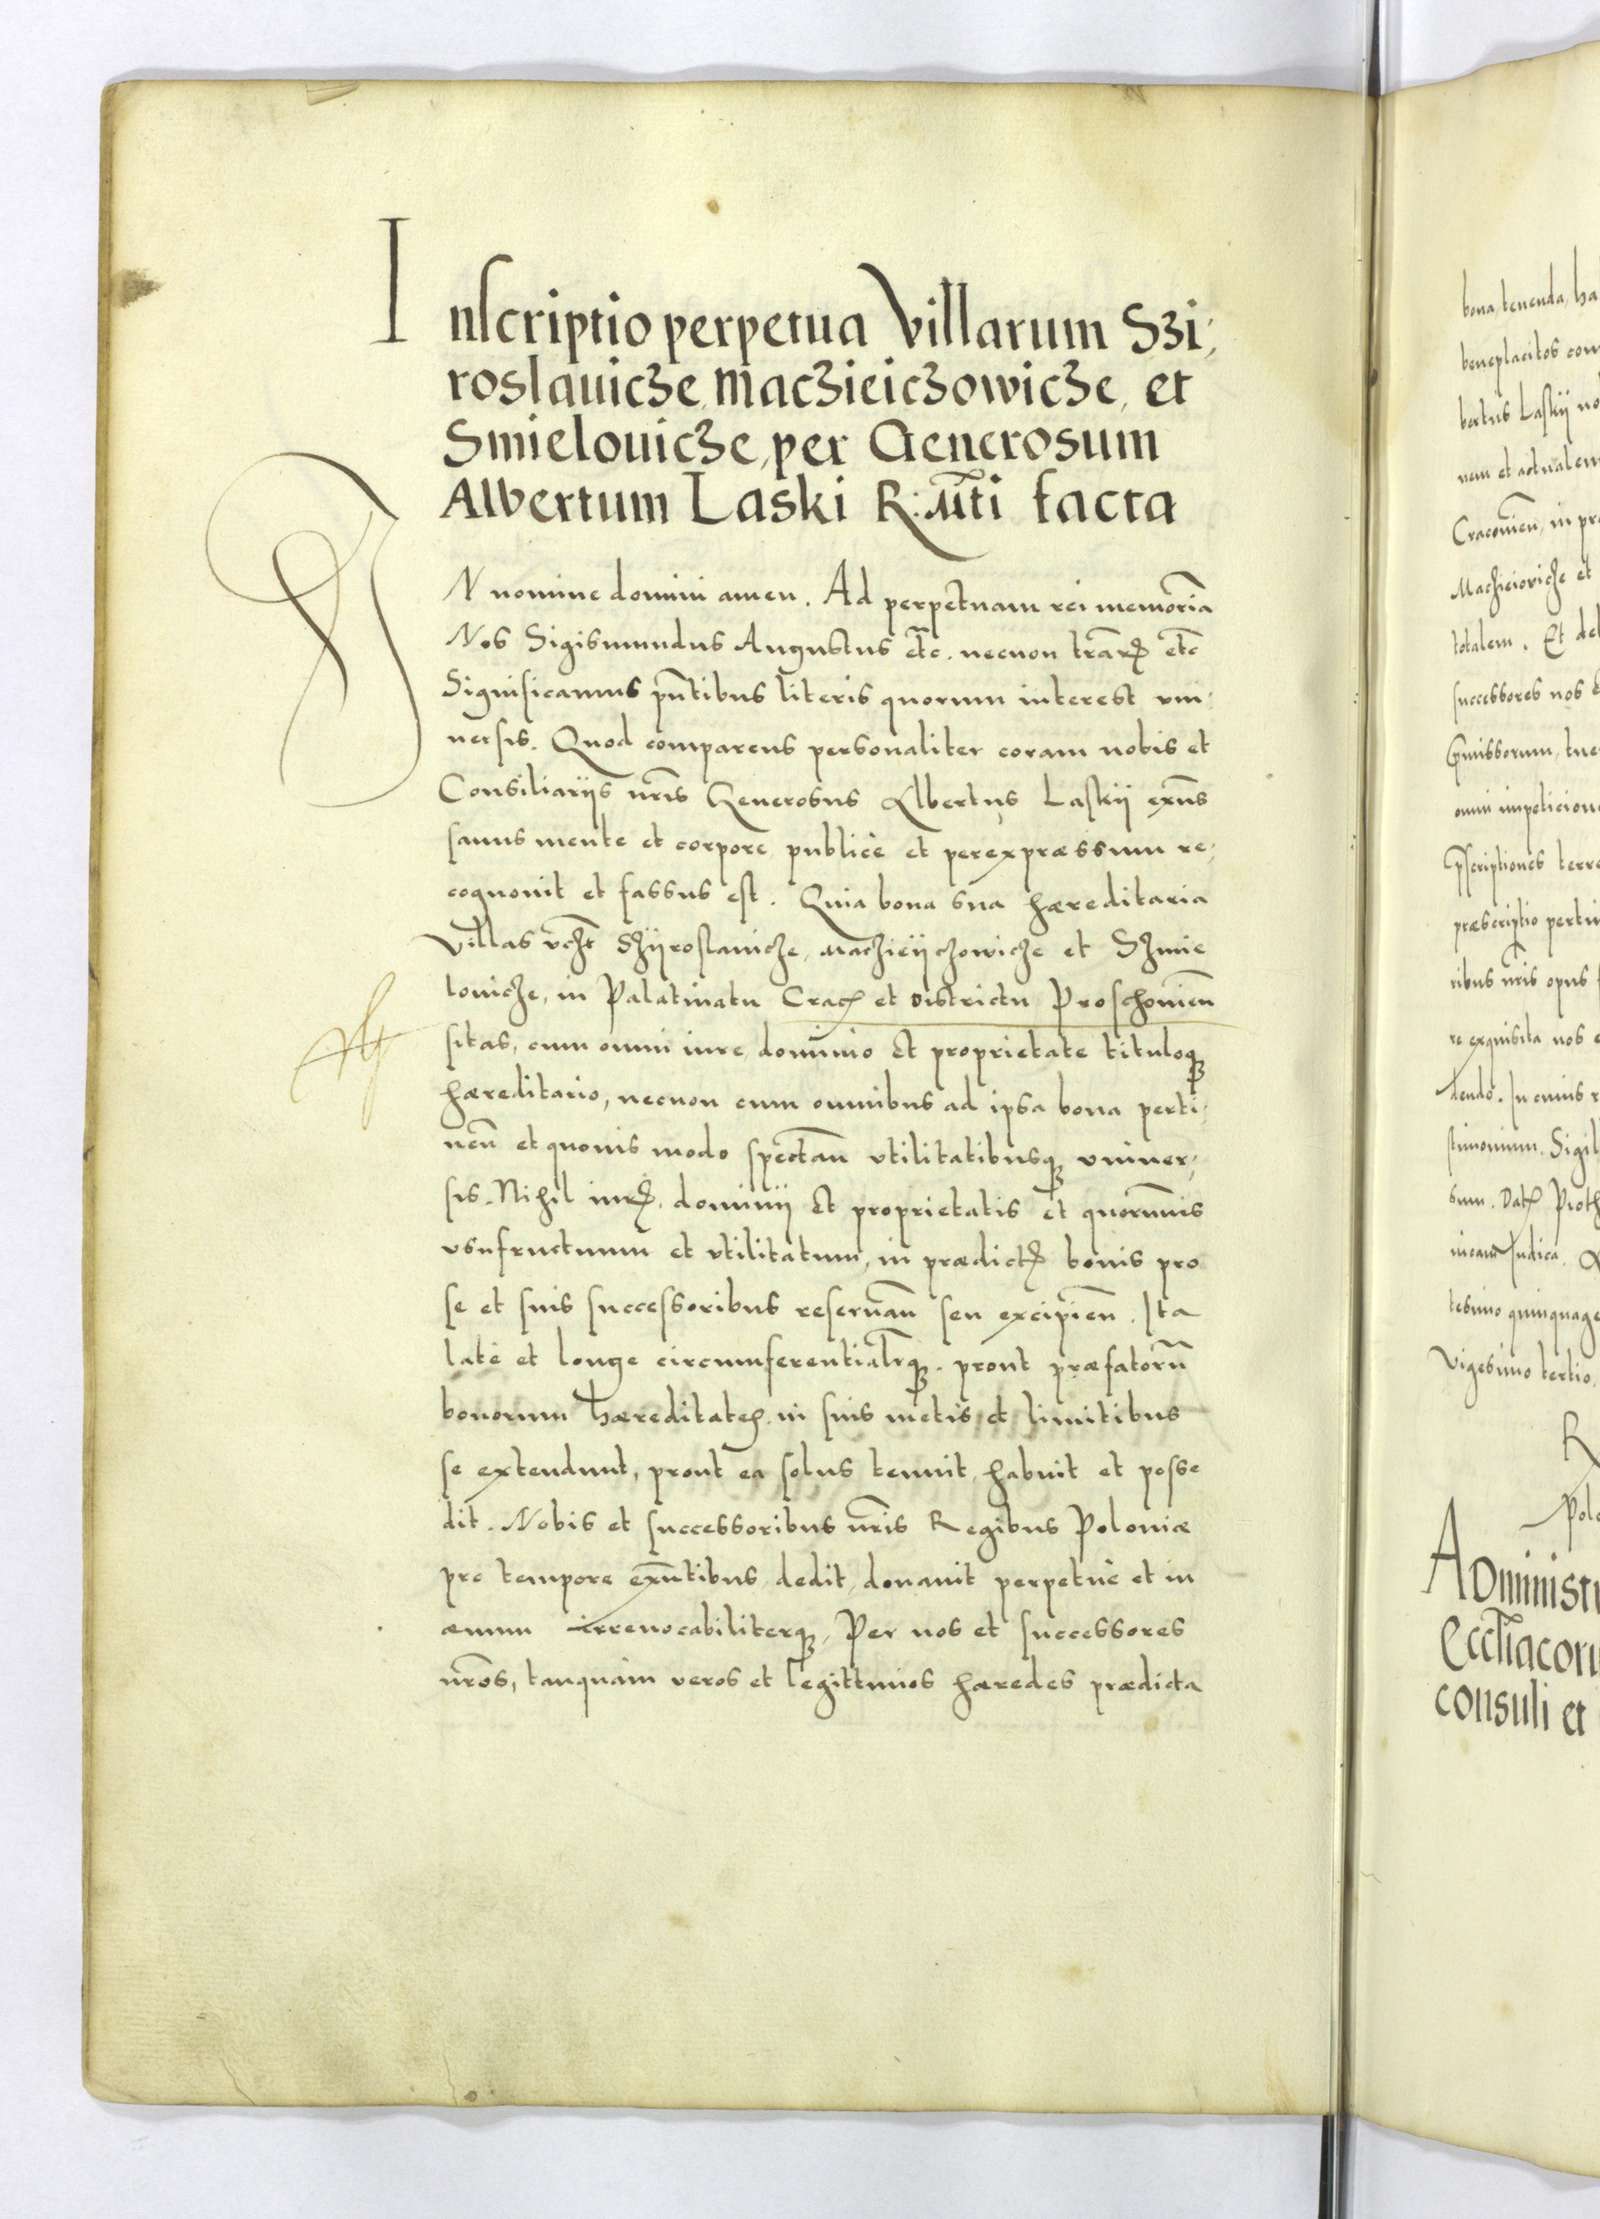 Inscriptio perpetua Villarum Szi,
roslauicze, Maczieiczowicze, et
Smielouicze, per Generosum
Albertum Laski R: Mti facta
IN nomine domini amen. Ad perpetuam rei memoria
Nos Sigismundus Augustus etc. necnon trar etc
Significamus pntibus literis quorum interest vni,
uersis. Quod comparens personaliter coram nobis et
Consiliarijs nris Generosus Albertus Laskij exns
sanus mente et corpore publice et perexpræssum re,
cognouit et fassus est. Quia bona sua hæreditaria
Villas vczt Szijroslauicze, Maczieijczowicze et Szmie
louicze, in Palatinatu Crac et Districtu Proschouien
sitas, cum omni iure dominio et proprietate tituloq
hæreditario, necnon cum omnibus ad ipsa bona perti,
nen et quouis modo spectan vtilitatibusq vniuer,
sis. Nihil iur, dominij et proprietatis et quorumuis
vsufructuum et vtilitatum, in prædict bonis pro
se et suis successoribus reseruan seu excipien. Ita
late et longe circumferentialrq. prout præfatoru
bonorum hæreditates in suis metis et limitibus
se extendunt, prout ea solus tenuit, habuit et posse
dit. Nobis et successoribus nris Regibus Poloniæ
pro tempore exntibus dedit, donauit perpetue et in
æuum irreuocabiliterq, Per nos et successores
nros, tanquam veros et legittimos hæredes prædicta
bona tenenda, ha
beneplacitos com
bertus Laskij no
nem et actualem
Cracouien, in pr
Maczieiovicze et
totalem. Et de
successores nos
pmissorum, tue
omni impeticion
pscriptiones terre
præscriptio pertin
ribus nris opus f
re exquisita nos
dendo. In cuius r
stimonium. Sigil
sum. Dat Piotr
nicam Judica.
tesimo quinquage
Vigesimo tertio.
R
Polo
Administr
Eccliacoru
consuli et